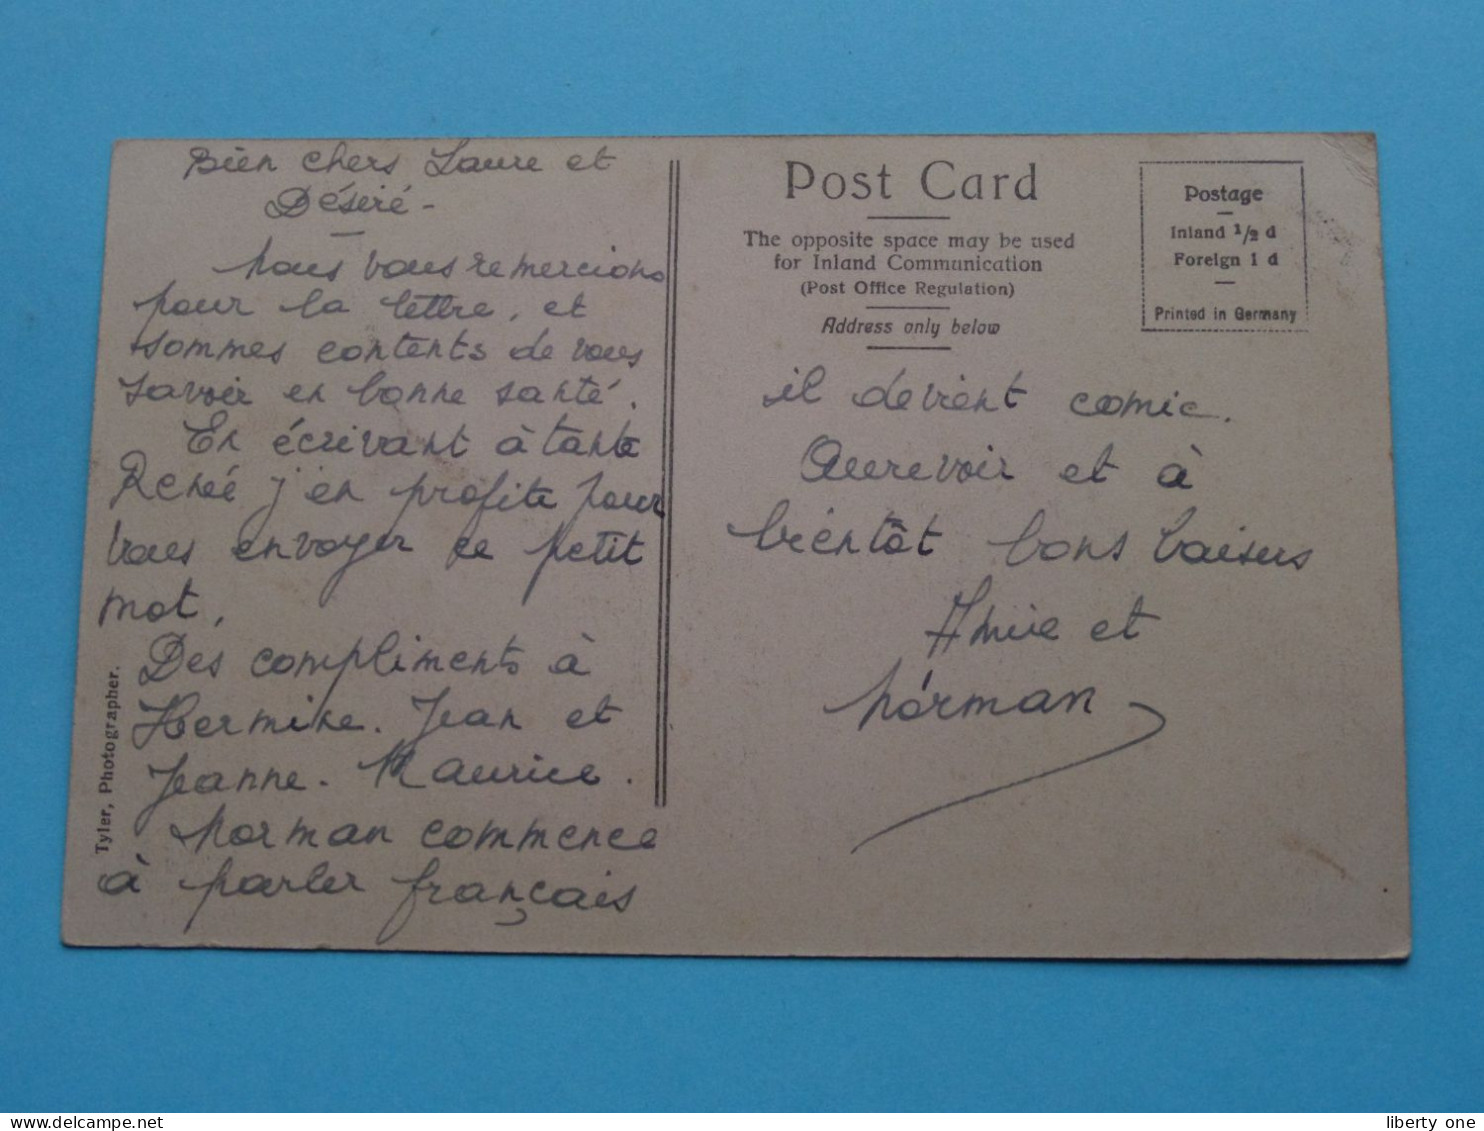 Bien chers Laure et
Désiré -
Nous vous remercions
pour la lettre, et
sommes contents de vous
savoir en bonne santé.
En écrivant à tante
Renée j'en profite pour
vous envoyer ce petit
mot.
Des compliments à
Hermine. Jean et
Jeanne. Maurice.
Norman commence
à parler français
Tyler, Photographer.
Post Card
The opposite space may be used
for Inland Communication
(Post Office Regulation)
Address only below
Postage
Inland 1/2 d
Foreign 1 d
Printed in Germany
il devient comic.
Aurevoir et à
bientôt bons baisers
et
Norman
liberty one